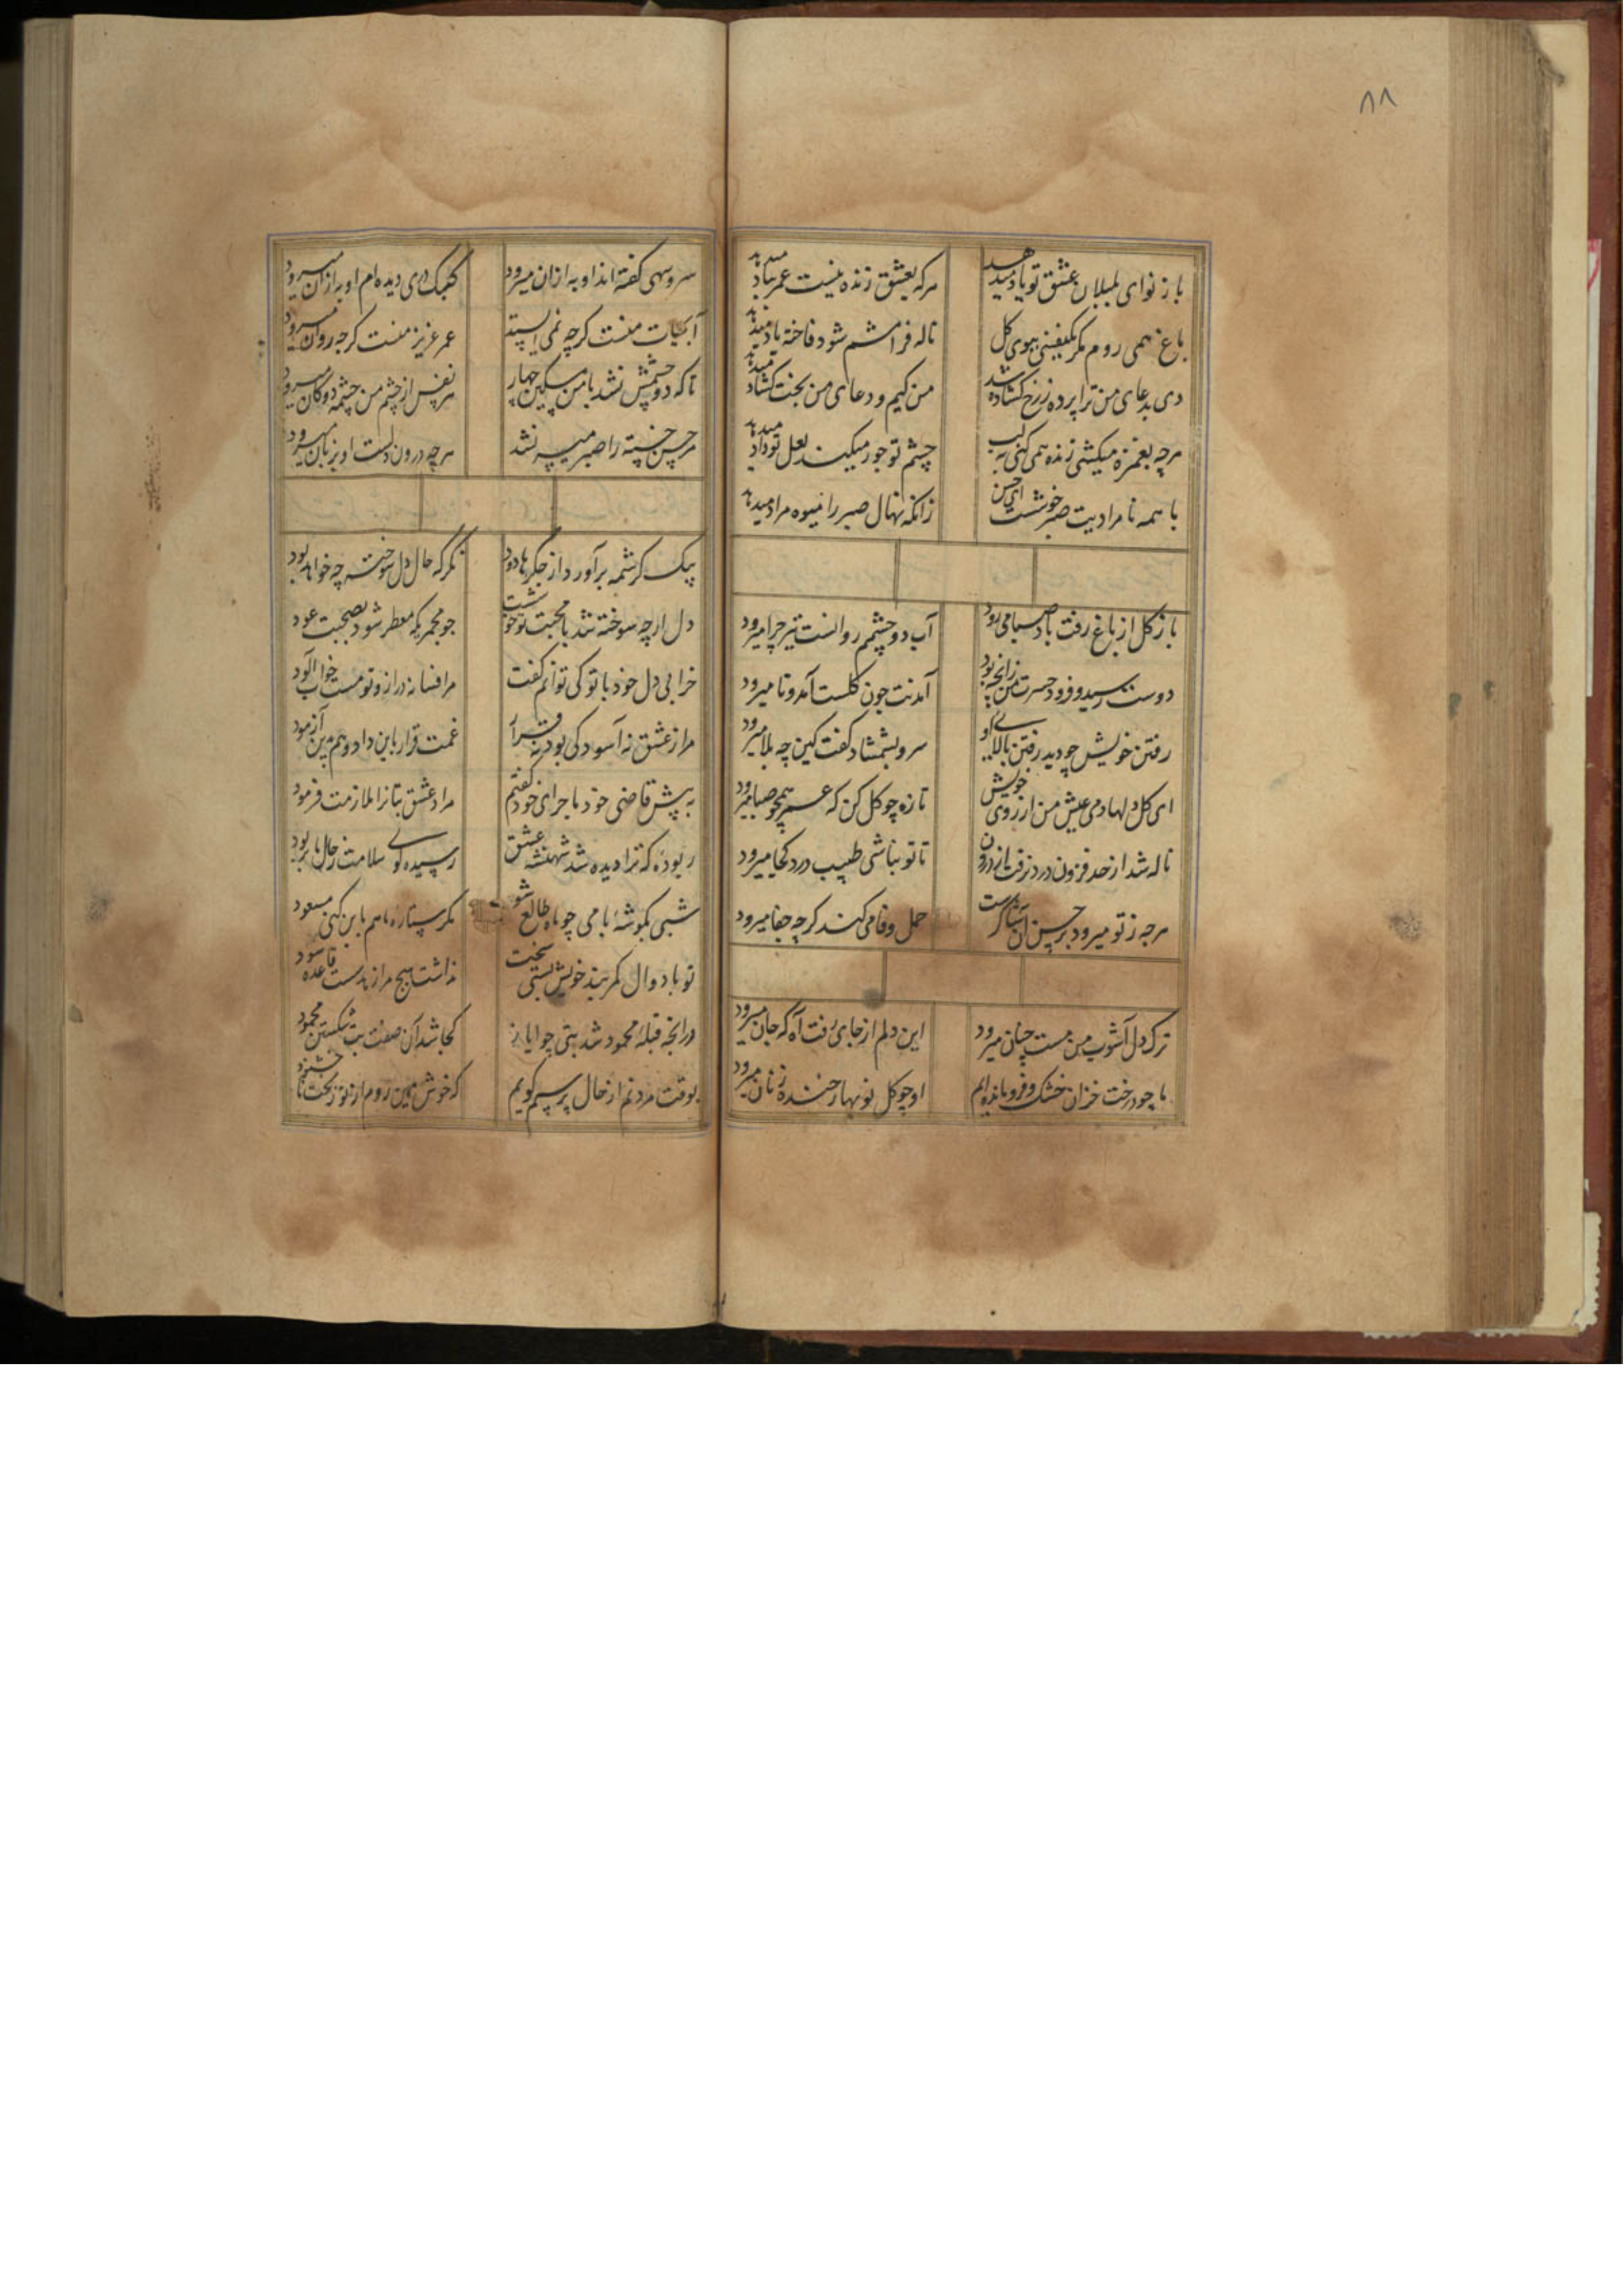 ۸۸
باز نوای بلبلان عشق تو یاد میدهد هرکه بعشق زنده نیست عمر بباد میدهد
باغ همی روم مکر ببوی کل ناله فرامشم شود فاخته یاد میدهد
دی بدعای من ترا پرده ز رخ کشاده شد من کیم و دعای من بخت کشاد میدهد
هرچه بغمزه میکشی زنده همی کنی بلب چشم تو جور میکند لعل تو داد میدهد
با همه نامرادیت صبر خوشست ای حسن زانکه نهال صبر را میوه مراد میدهد
باز کل از باغ رفت باد صبا می رود آب دو چشمم روانست تیز چرا میرود
دوست رسید و فرود حسرت من زانچه بود آمدنت چون کلست آمد و تا میرود
رفتن خویش چو دید رفتن بالای او سرو بشمشاد کفت کین چه بلا میرود
ای کل دلها دمی عیش من از روی خویش تازه چو کل کن که عمر همچو صبا میرود
ناله شد از حد فزون درد نرفت از درون تا تو نباشی طبیب درد کجا میرود
هرچه ز تو میرود بر حسن آن حمل وفا می کند کرچه جفا میرود
ترک دل آشوب من مست چنان میرود این دلم از جای رفت آه که جان میرود
ما چو درخت خزان خشک و فرو مانده ایم او چو کل نوبهار خنده زنان میرود
سرو سهی کفته اند او به ازان میرود کبک دری دیده ام او به ازان میرود
آبحیات منست کرچه نمی ایستد عمر عزیز منست کرچه روان میرود
تا که دو چشمش نشد با من مسکین چهار هر نفس از چشم من چشمه دوکان میرود
هر حسن خسته را صبر میسر نشد هرچه درون دلست او بزبان میرود
پیک کرشمه برآورد از جکرها دود نکر که حال دل سوخته چه خواهد بود
دل ارچه سوخته شد با محبت تو خوشست چو مجمری که معطر شود بصحبت عود
خرابی دل خود با تو کی توانم کفت مرا فسانه دراز و تو مست خواب آلود
مرا ز عشق نه آسودگی بود نه قرار غمت قرار باین داد و هم بدین آزمود
به پیش قاضی خود ماجرای خود کفتم مراد عشق بتانرا ملازمت فرمود
ربوده که ترا دیده شد شهنشه عشق رسیده کوی سلامت ز حال ما بربود
شبی بکوشه بامی چو ماه طالع شو مکر ستاره ما هم باین کنی مسعود
تو با دوال کمربند خویش بستی سخت نداشت هیچ مرا زندست قاعده سود
درانچه قبله محمود شد بتی چو ایاز کجا شد آن صفت بت شکستن محمود
بوقت مردنم از حال پرسیم کویم که خوش همین روم از تو ز بخت ناخشنود